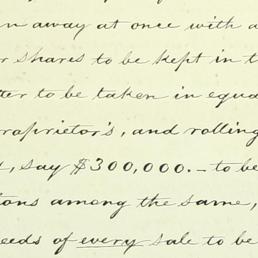 n away at once with a
r shares to be kept in t
tter to be taken in equa
roprietor's, and rolling
l, say $300,000.– to be
tions among the same,
eeds of every sale to be